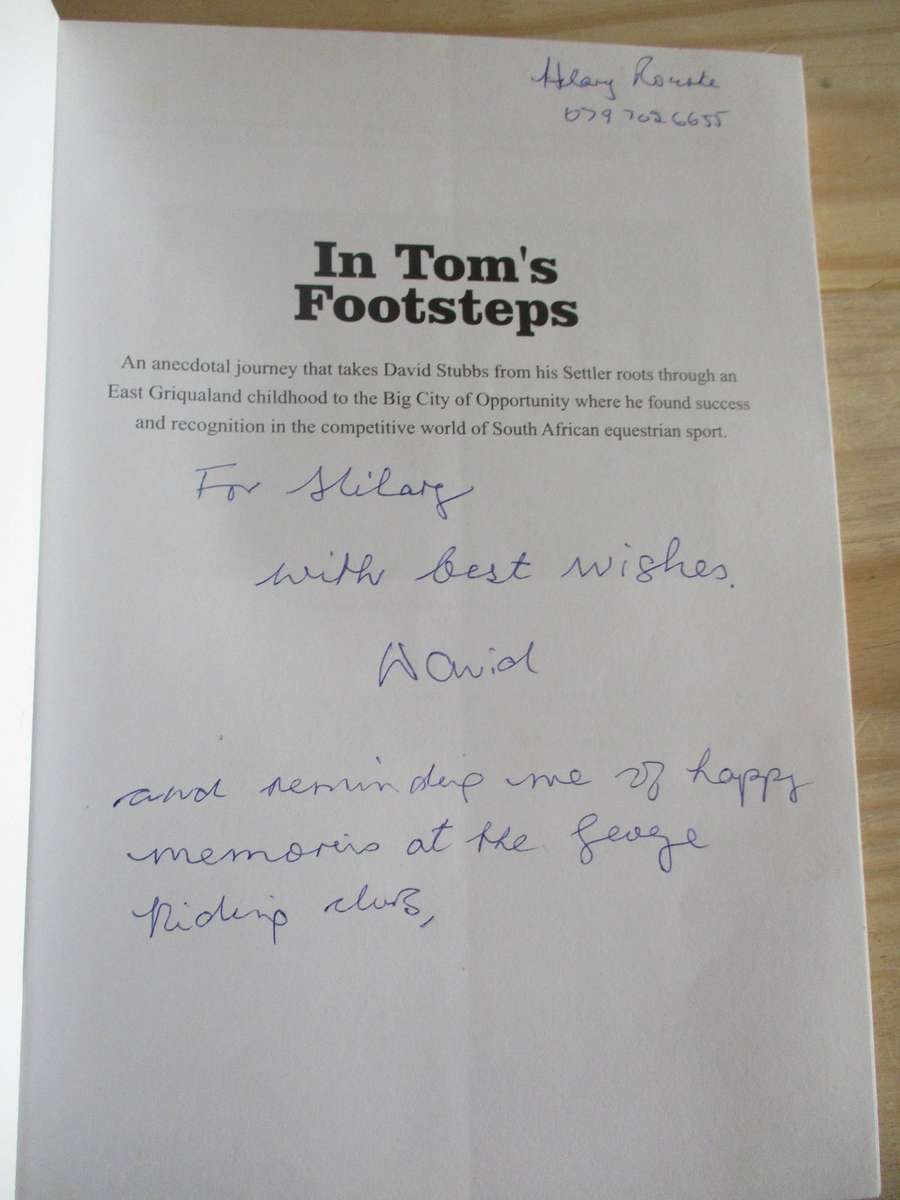 Hilary Rourke
079 702 6655
In Tom's
Footsteps
An anecdotal journey that takes David Stubbs from his Settler roots through an
East Griqualand childhood to the Big City of Opportunity where he found success
and recognition in the competitive world of South African equestrian sport.
For Hilary
with best wishes.
David
and reminding me of happy
memories at the George
Riding club,